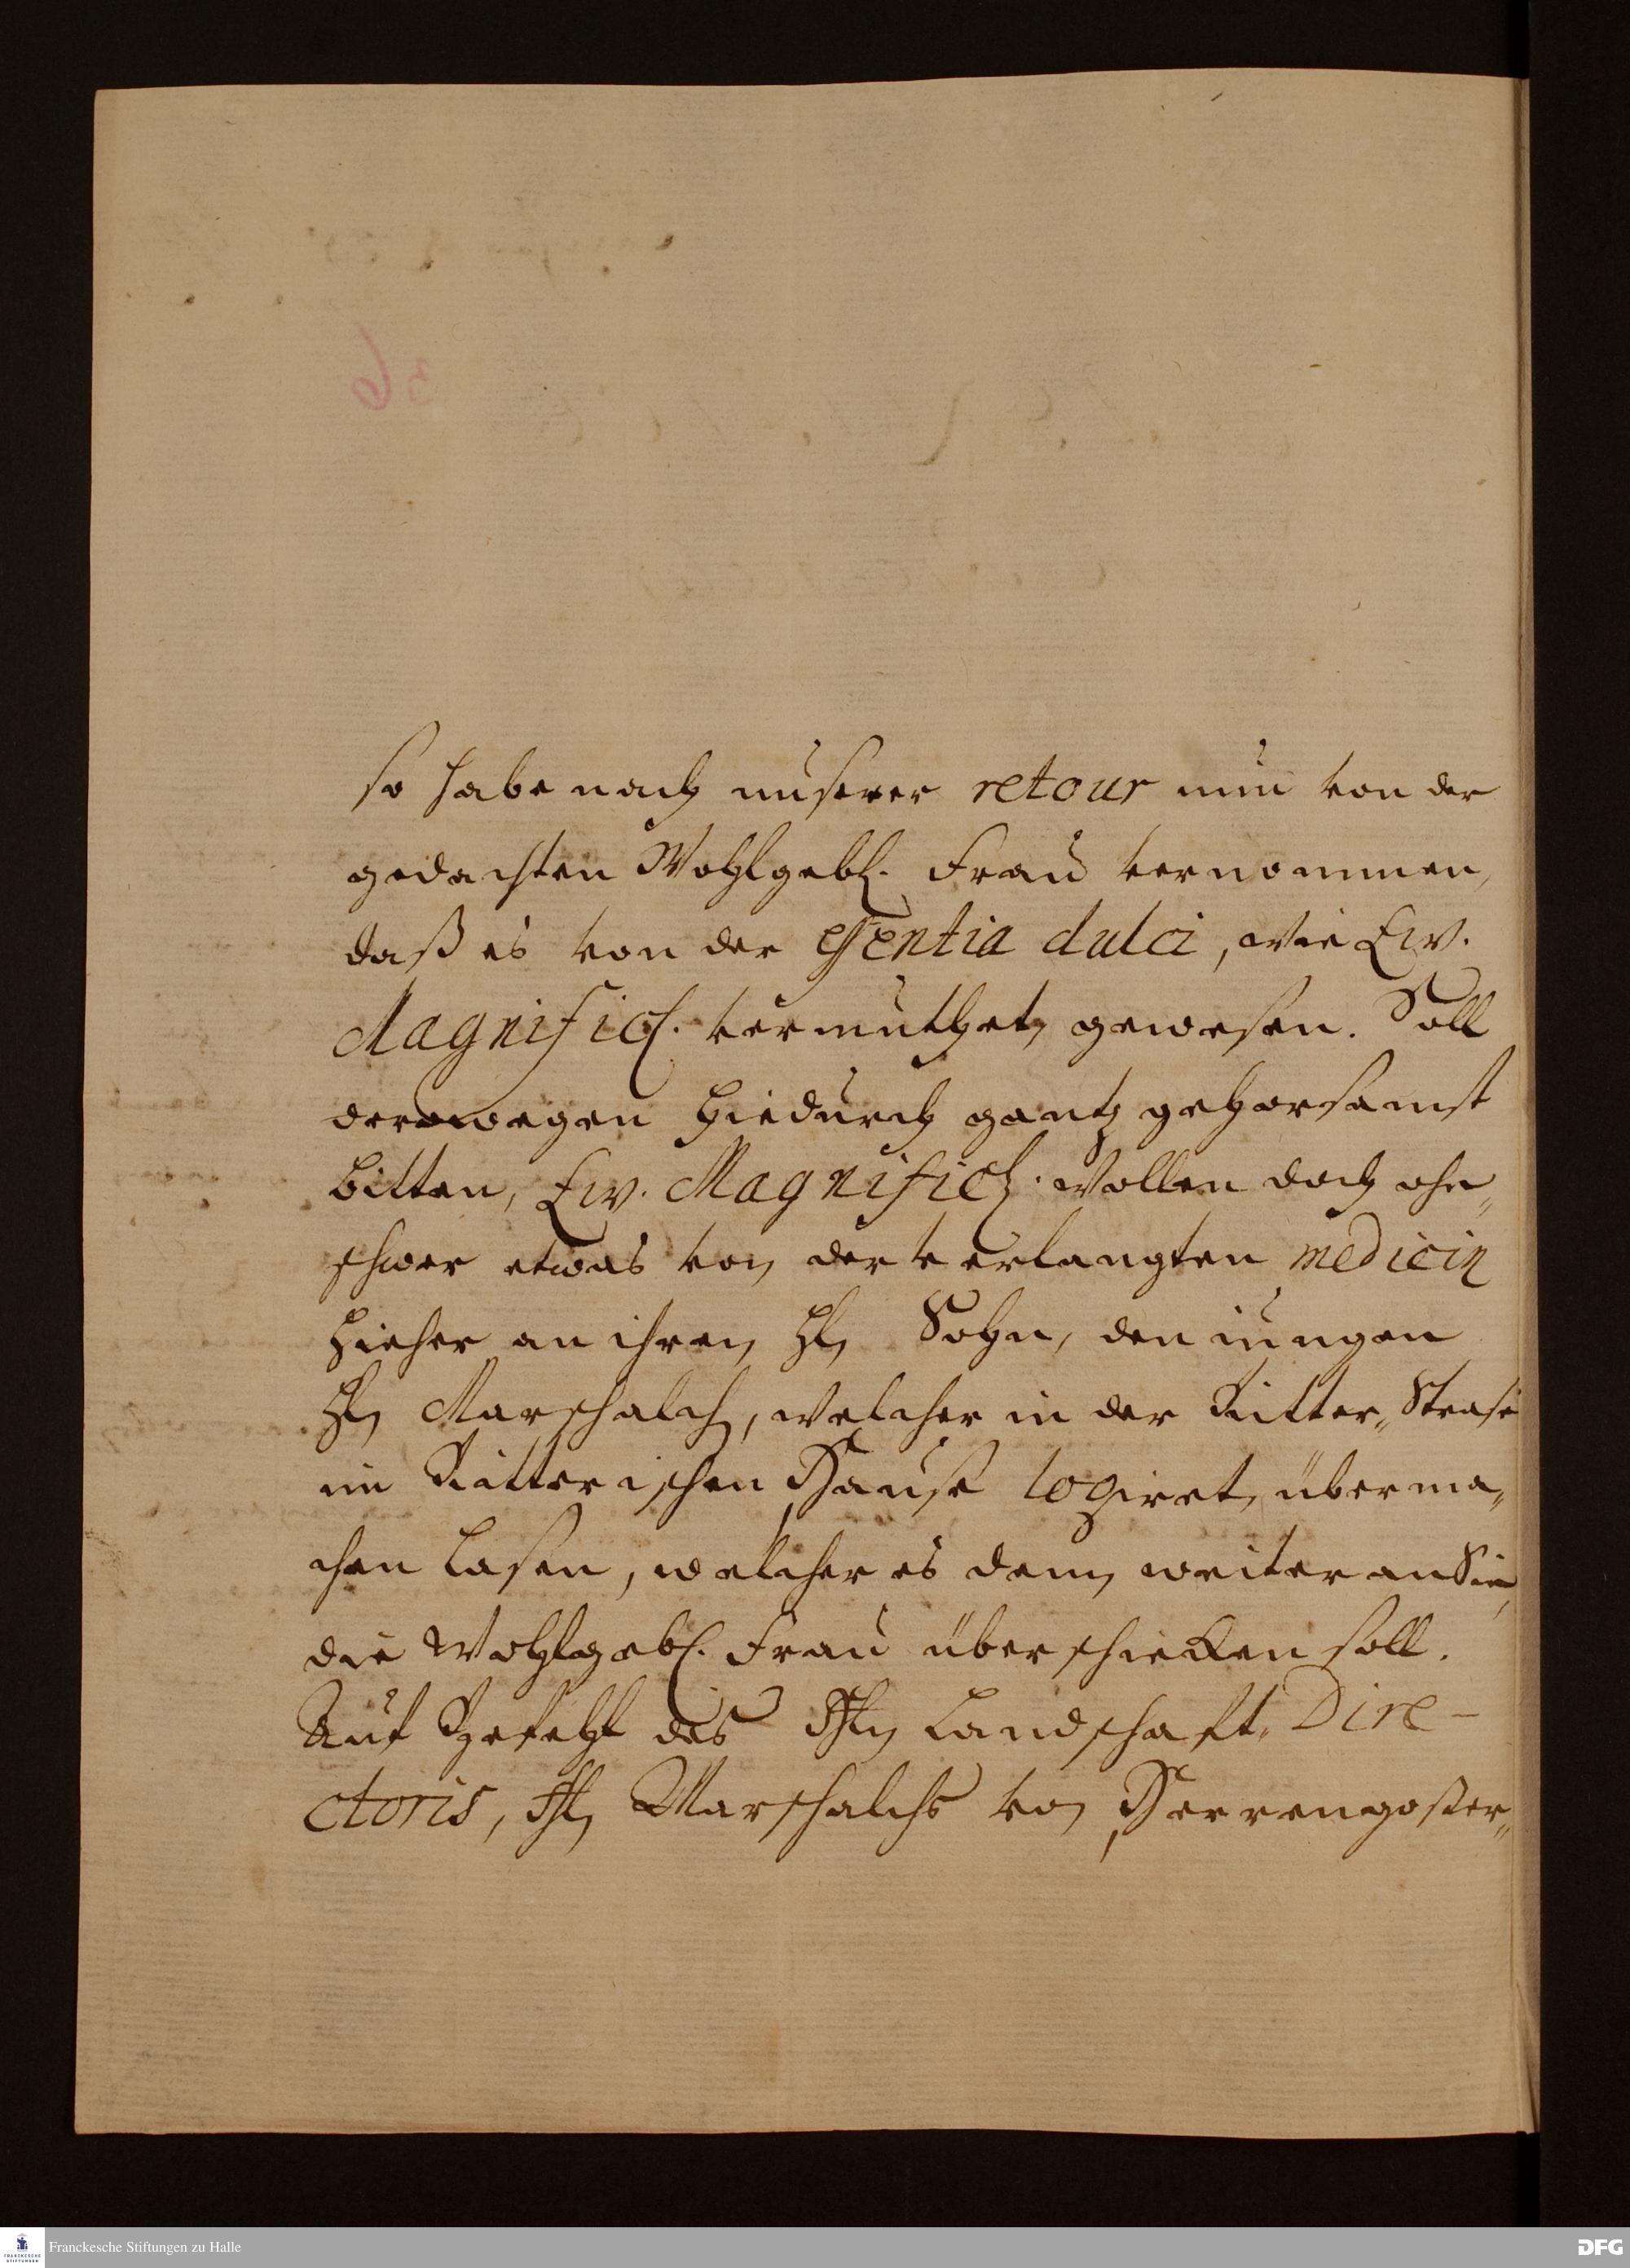 so habe nach unserer retour nun von der
gedachten Wohlgebl. Frau vernommen,
daß es von der Essentia dulci, wie Ew.
Magnific. vermuthet, gewesen. Soll
derowegen hiedurch gantz gehorsamst
bitten, Ew. Magnific. wollen doch ohn„
schwer etwas von der verlangten medicin
hieher an ihren Hn Sohn, den iungen
Hn Marschalch, welcher in der Ritter„Strase
im Ritterischen Hause logiret, überma„
chen lasen, welcher es denn weiter an Sie,
die Wohlgebl. Frau überschicken soll.
Auf Befehl des Hn Landschaft„Dire-
ctoris, Hn Marschalchs von Herrengosser„
Franckesche Stiftungen zu Halle
DFG